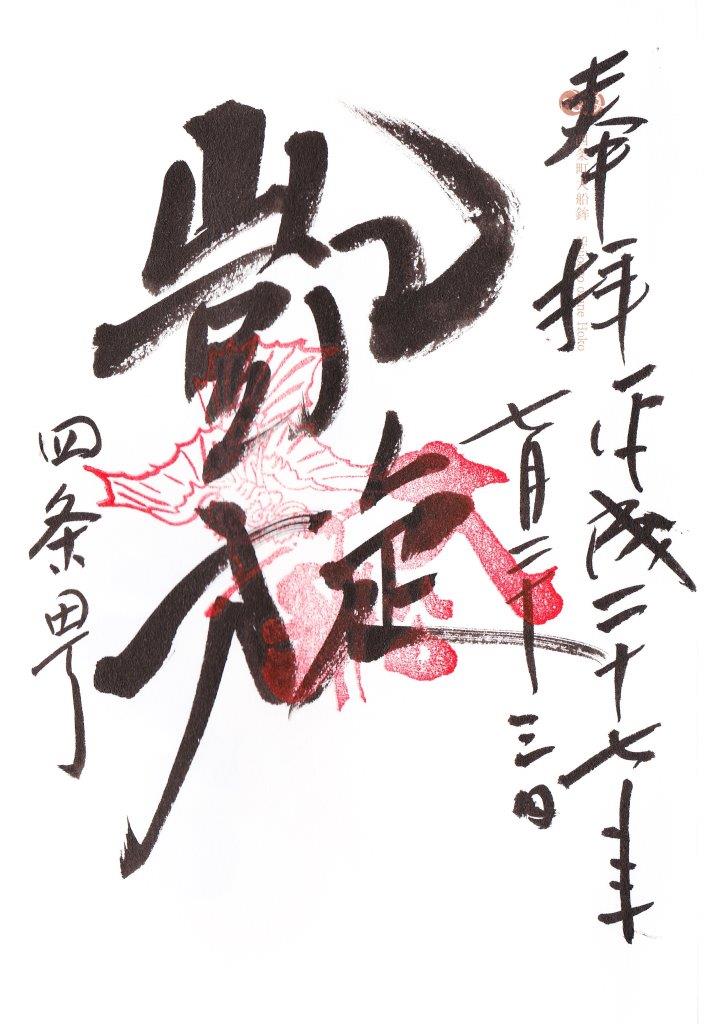 奉拝
平成二十七年
七月二十三日
凱旋
四条町
条町大船鉾 Hoko